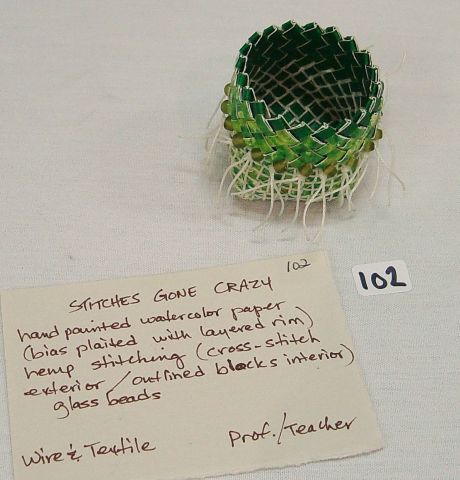 102
STITCHES GONE CRAZY
hand painted watercolor paper
(bias plaited with layered rim)
hemp stitching (cross-stitch
exterior / outlined blocks interior)
glass beads
Wire & Textile
Prof./Teacher
102